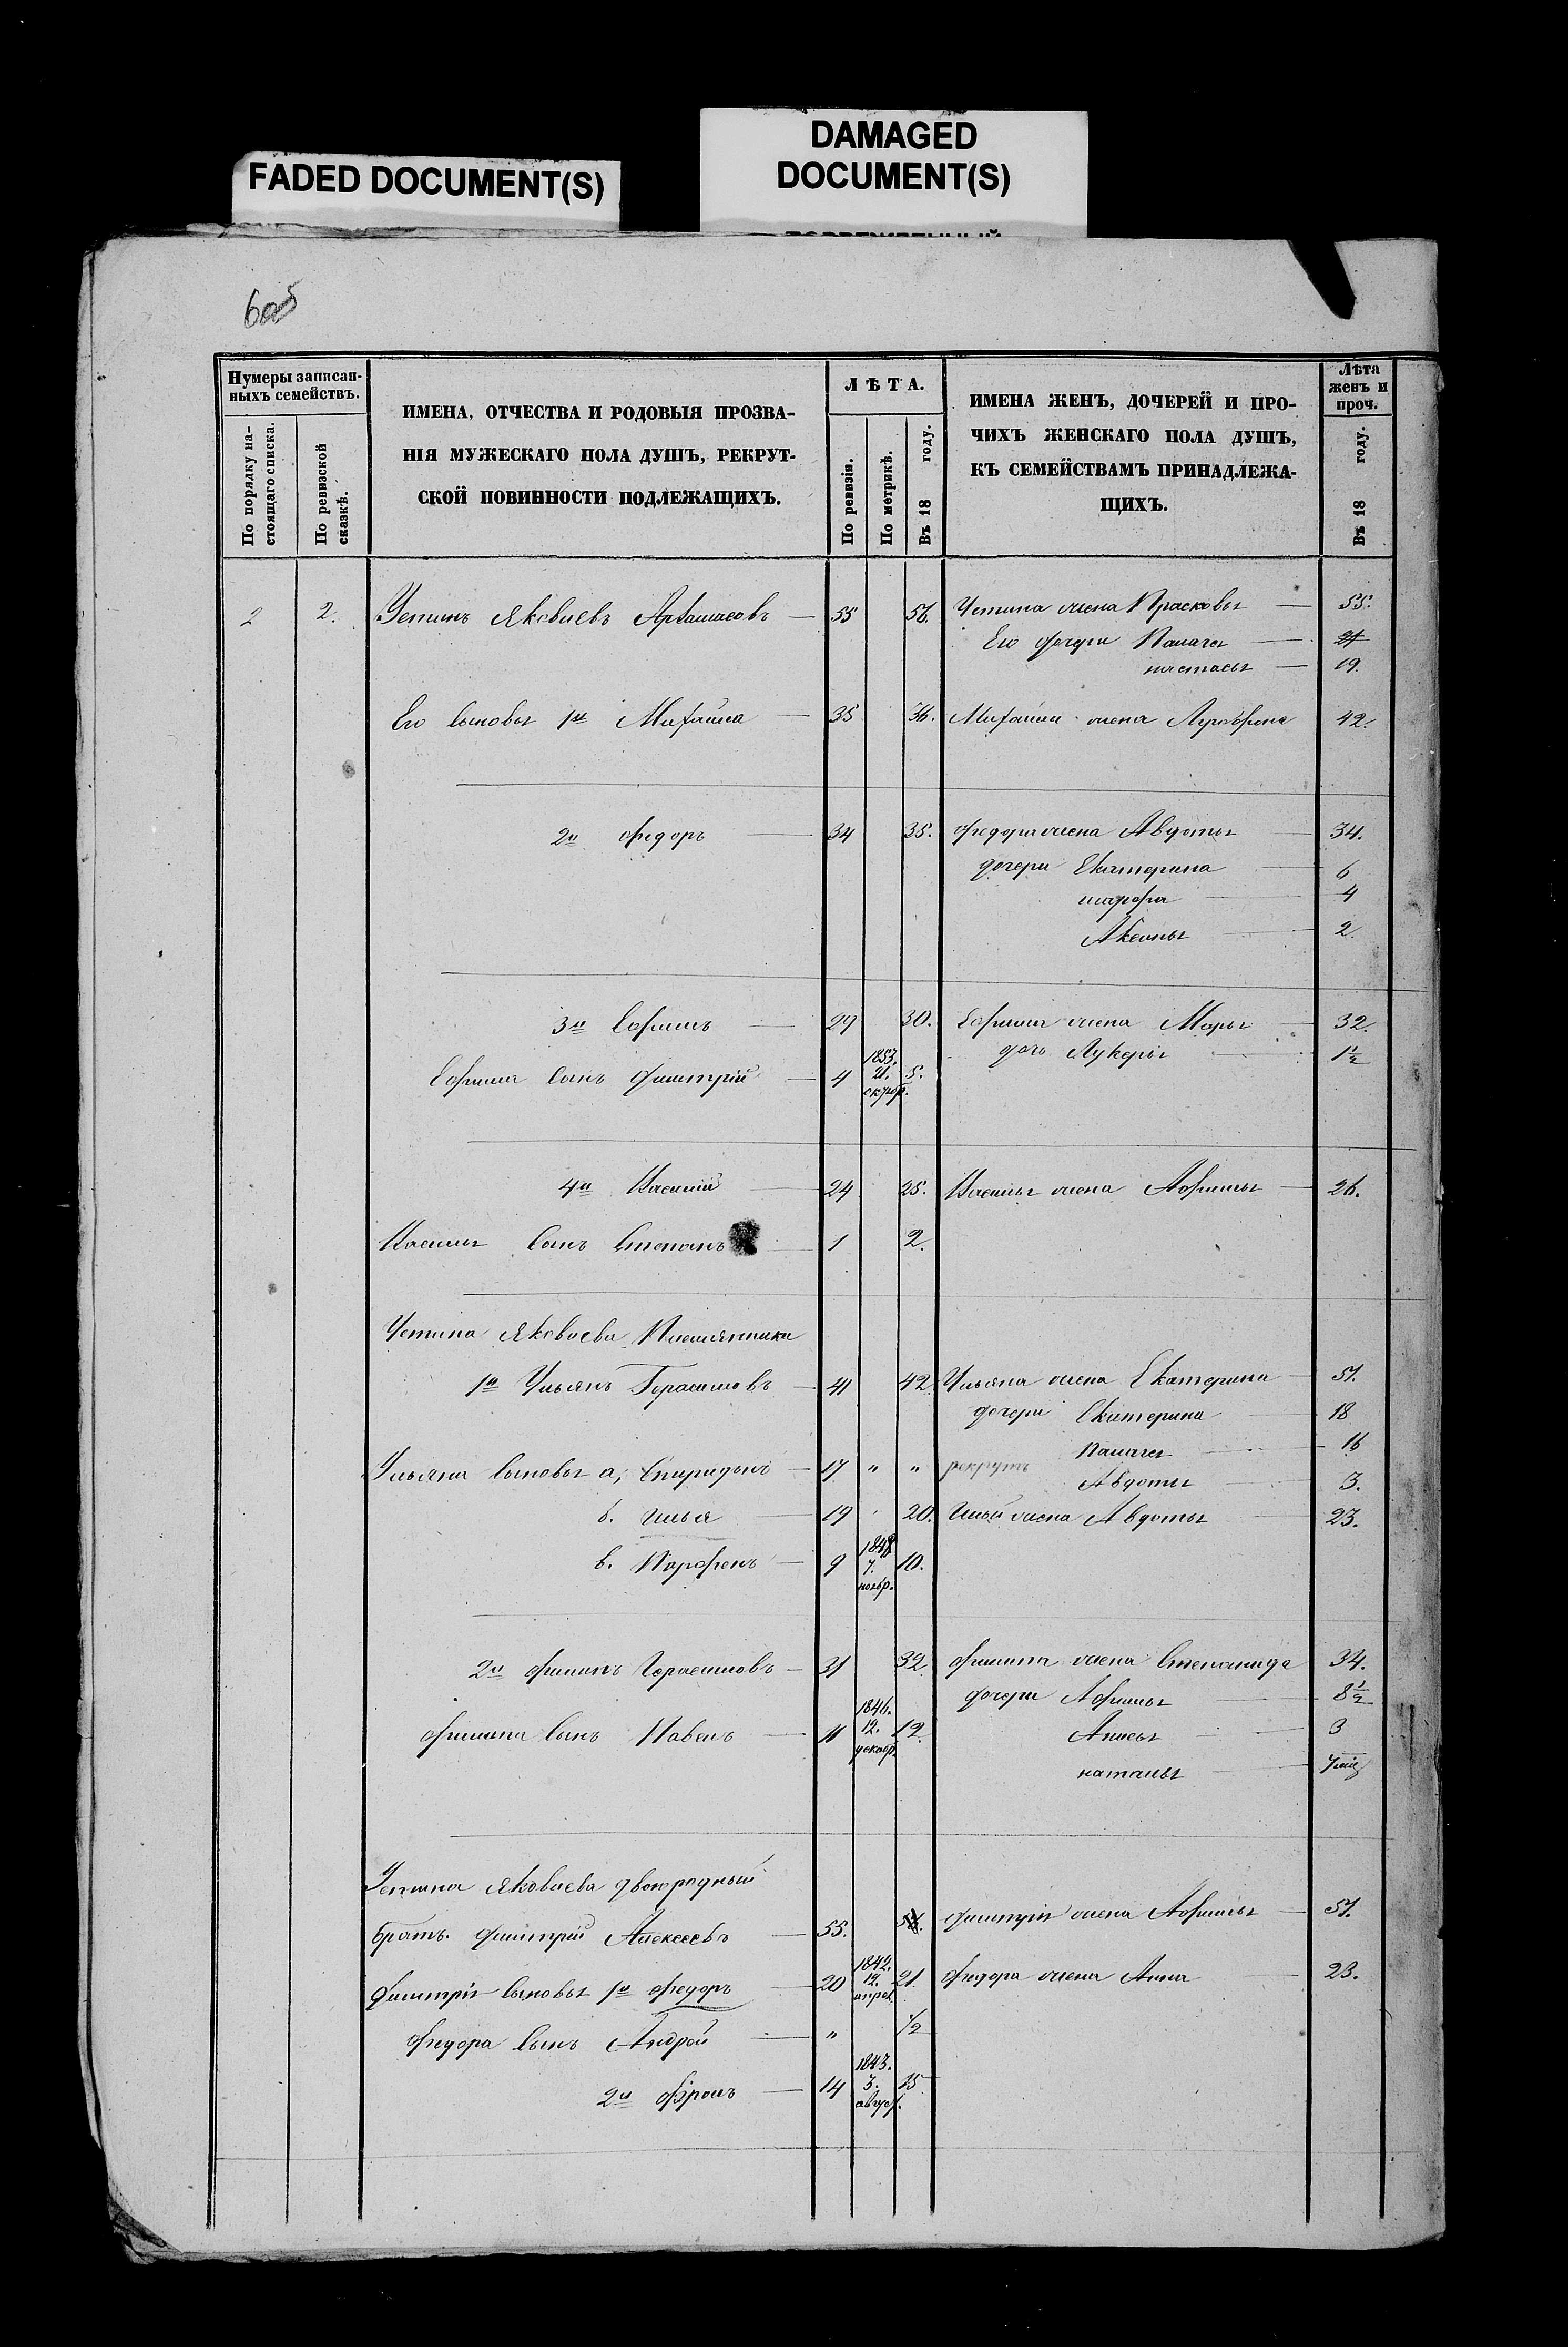 FADED DOCUMENT(S)
DAMAGED
DOCUMENT(S)
60об
Нумеры записан-
ныхъ семействъ.
По порядку на-
стоящаго списка.
По ревизской
сказкѣ.
ИМЕНА, ОТЧЕСТВА И РОДОВЫЯ ПРОЗВА-
НІЯ МУЖЕСКАГО ПОЛА ДУШЪ, РЕКРУТ-
СКОЙ ПОВИННОСТИ ПОДЛЕЖАЩИХЪ.
ЛѢТА.
По ревизіи.
По метрикѣ.
Въ 18 году.
ИМЕНА ЖЕНЪ, ДОЧЕРЕЙ И ПРО-
ЧИХЪ ЖЕНСКАГО ПОЛА ДУШЪ,
КЪ СЕМЕЙСТВАМЪ ПРИНАДЛЕЖА-
ЩИХЪ.
Лѣта
женъ и
проч.
Въ 18 году.
2 2. Устинъ Яковлевъ — 55 56. Устина жена Прасковья — 55.
Его дочери Палагея —
настасья — 19.
Его сыновья 1й Михайла — 35 36. Михайли жена 42.
2й Федоръ — 34 35. Федора жена Авдотья 34.
дочери Екатерина 6
марфа 4
Аксинья 2
3й Ефимъ — 29 30. Ефима жена Марья 32.
дочь Лукерья 1½
Ефима сынъ Дмитрій — 4 1853. 21. октяр. 5.
4й Василій 24 25. Василья жена Афимья — 26.
Василья сынъ Степанъ 1 2.
Устина Яковлева Племянники
1й Ульянъ Герасимовъ — 41 42. Ульяна жена Екатерина — 51.
дочери Екатерина 18
Палагея 16
Ульяна сыновья а, Спиридонъ — 17 " " рекрутъ
Авдотья 3.
б. Илья 19 20. Ильи жена Авдотья 23.
в. Парфенъ — 9 1848 7. ноябр. 10.
2й Филипъ Герасимовъ — 31 32 Филипа жена Степанида 34.
дочери Афимья 8½
Филипа сынъ Павелъ — 11 1846. 12. декабр. 12.
Анисья 3
наталья 7 мѣ
Устина Яковлева двоюродный
братъ Дмитрій Алексеевъ 55. Дмитрія жена Афимья — 57.
Дмитрія сыновья 1й Федоръ 20 1842. 12. апрел. 21. Федора жена Анна 23.
Федора сынъ Андрей — " ½
2й Фролъ — 14 1843. 3. август. 15